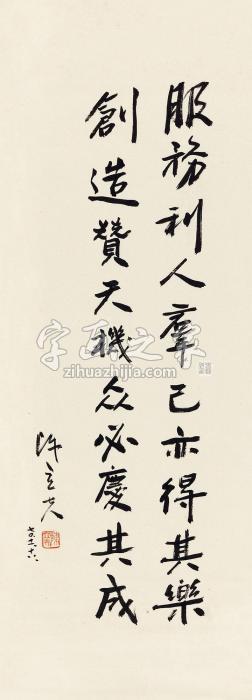 服務利人羣己亦得其樂
創造贊天機众必慶其成
陳立夫
七五、三、十六、
字画之家
zihuazhijia.com